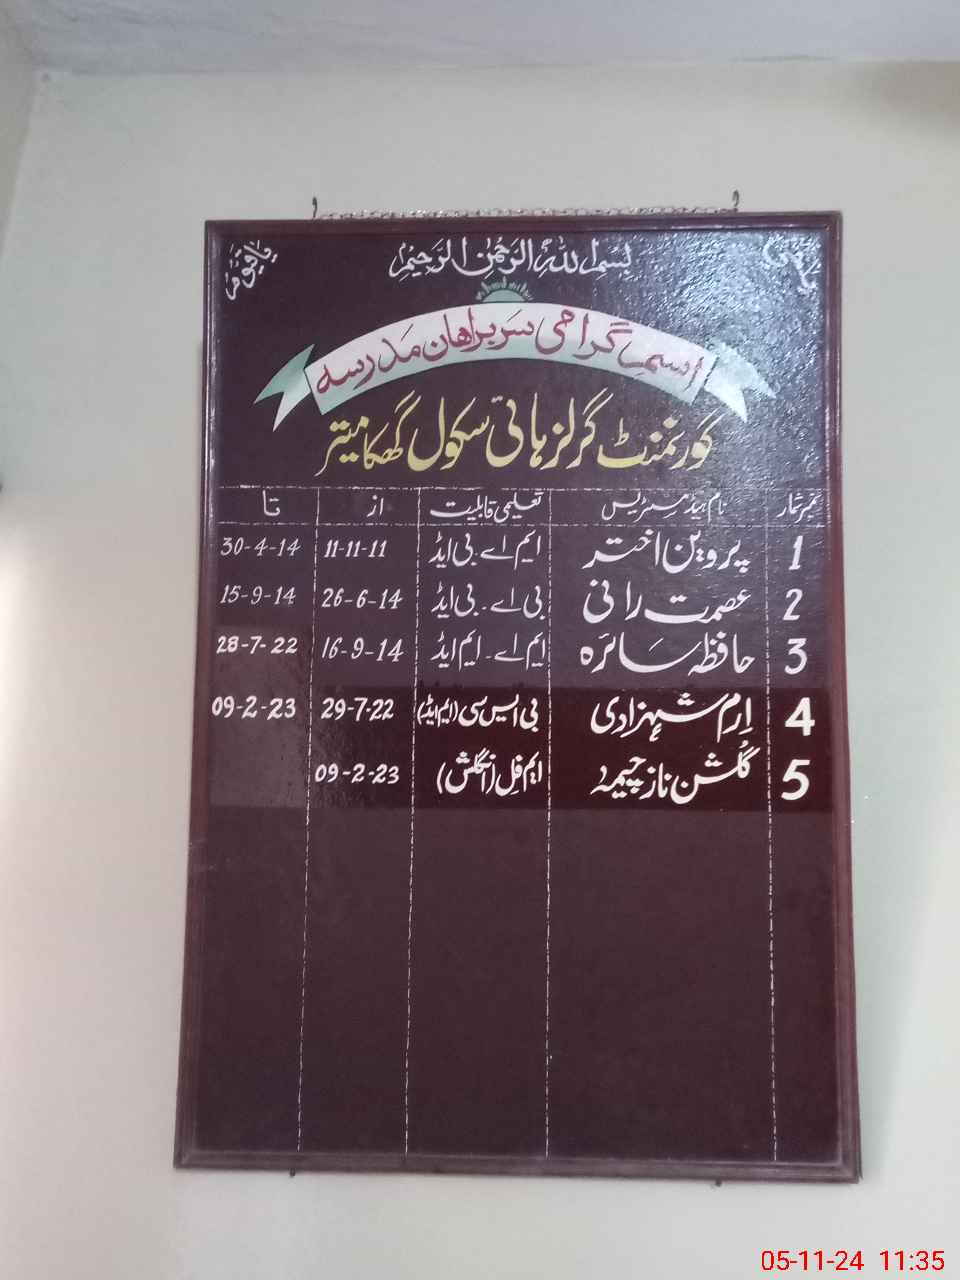 بسم اللہ الرحمن الرحیم
یا قیوم
اسمِ گرامی سربراہان مدرسہ
گورنمنٹ گرلز ہائی سکول گھکا میتر
نمبر شمار نام ہیڈ مسٹریس تعلیمی قابلیت از تا
1 پروین اختر ایم اے بی ایڈ 11-11-11 30-4-14
2 عصمت رانی بی اے۔ بی ایڈ 26-6-14 15-9-14
3 حافظہ سائرہ ایم اے۔ ایم ایڈ 16-9-14 28-7-22
4 اِرم شہزادی بی ایس سی (ایم ایڈ) 29-7-22 09-2-23
5 گلشن ناز چیمہ ایم فِل (انگلش) 09-2-23
05-11-24 11:35